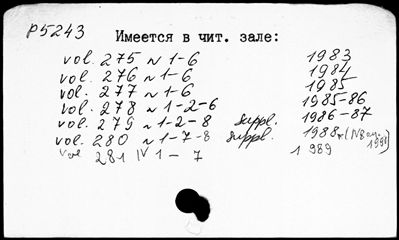 P5243
Имеется в чит. зале:
vol. 275 N 1-6 1983
vol. 276 N 1-6 1984
vol. 277 N 1-6 1985
vol. 278 N 1-2-6 1985-86
vol. 279 N 1-2-8 suppl. 1986-87
vol. 280 N 1-7-8 suppl. 1988
vol 281 N 1-7 1989